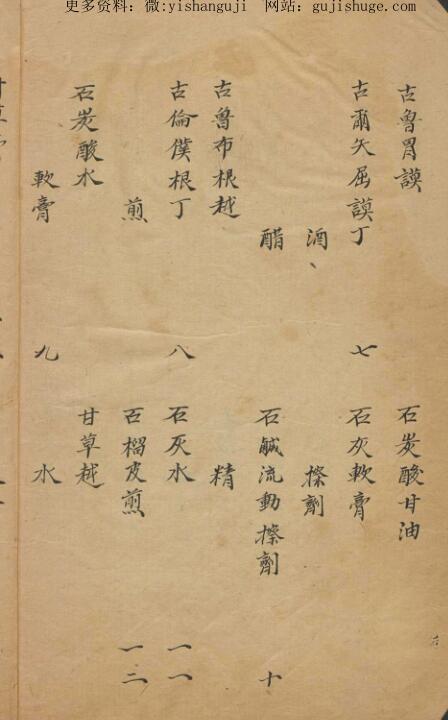 更多资料：微:yishanguji 网站：gujishuge.com
古魯胃謨
古爾矢屈謨丁 七
酒、
醋
古魯布根越
古倫僕根丁 八
煎
石炭酸水
軟膏 九
石炭酸甘油
石灰軟膏
擦劑
石鹹流動擦劑 十
精
石灰水 一一
石榴皮煎 一二
甘草越
水